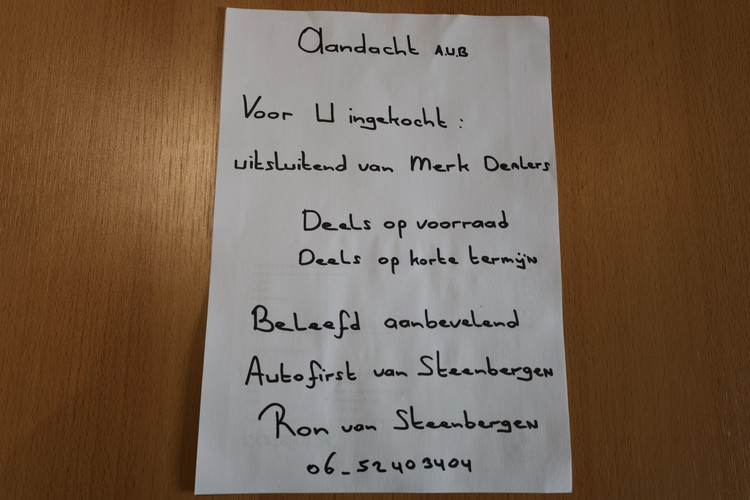 Aandacht A.U.B
Voor U ingekocht :
uitsluitend van Merk Dealers
Deels op voorraad
Deels op korte termijn
Beleefd aanbevelend
Autofirst van Steenbergen
Ron van Steenbergen
06-52403404